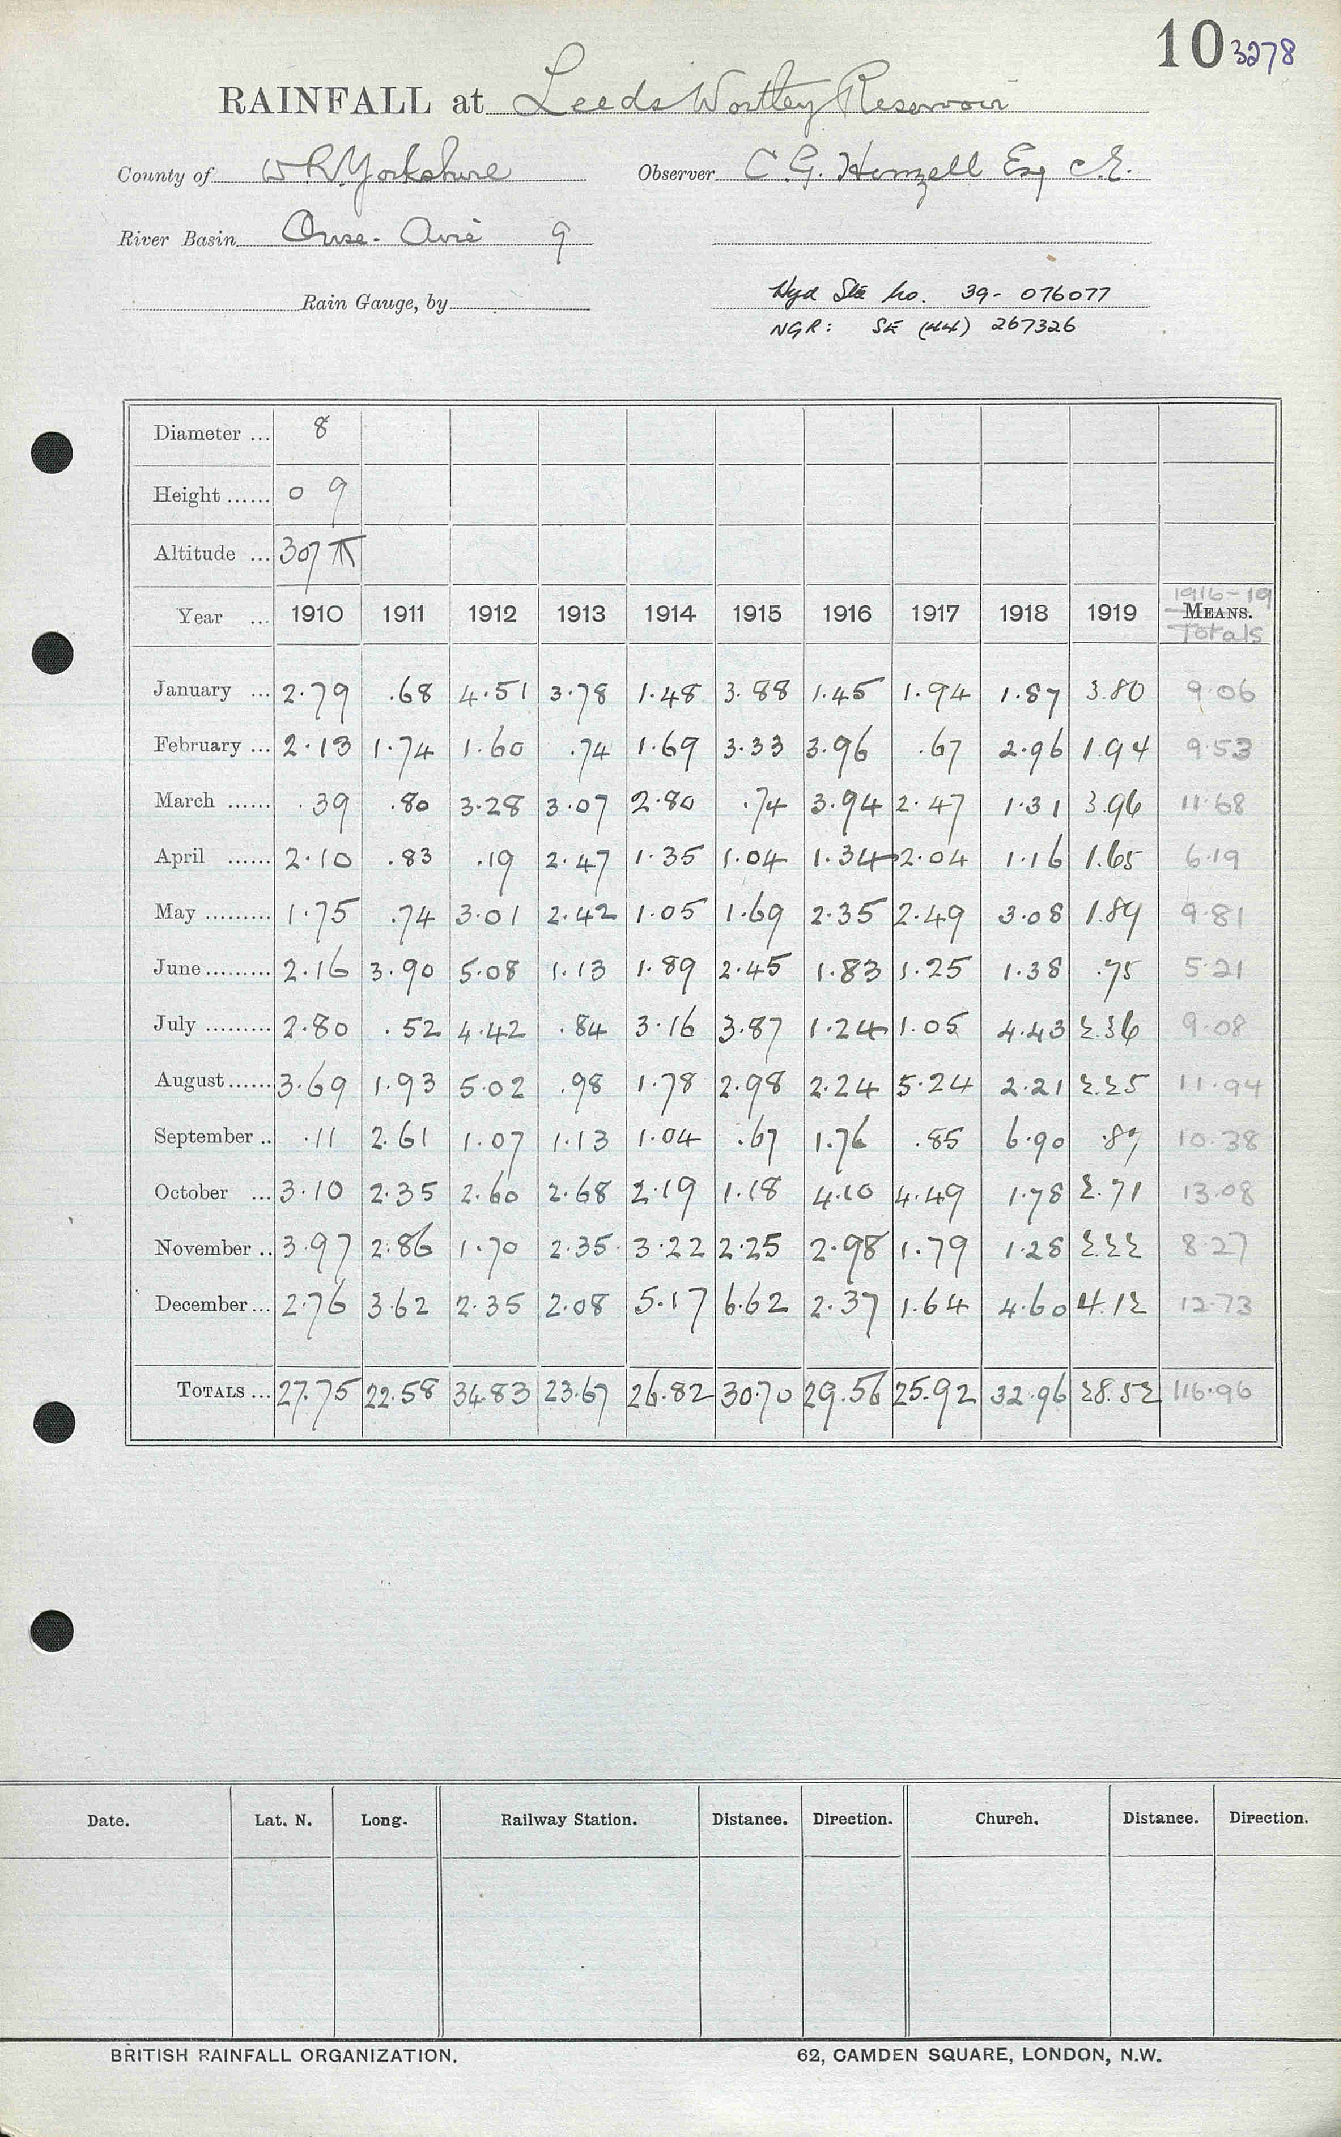 10 3278
RAINFALL at Leeds Wortley Reservoir
County of W R Yorkshire Observer C. G. Henzell Esq C.E.
River Basin Ouse - Aire 9
Rain Gauge, by Hyd Sta No. 39- 076077
NGR: SE (44) 267326
Diameter ... 8
Height ...... 0 9
Altitude ... 307 T
1916-19
Year ... 1910 1911 1912 1913 1914 1915 1916 1917 1918 1919 MEANS.
Totals
January ... 2.79 .68 4.51 3.78 1.48 3.88 1.45 1.94 1.87 3.80 9.06
February ... 2.13 1.74 1.60 .74 1.69 3.33 3.96 .67 2.96 1.94 9.53
March ...... .39 .80 3.28 3.07 2.80 .74 3.94 2.47 1.31 3.96 11.68
April ...... 2.10 .83 .19 2.47 1.35 1.04 1.34 2.04 1.16 1.65 6.19
May ......... 1.75 .74 3.01 2.42 1.05 1.69 2.35 2.49 3.08 1.89 9.81
June ......... 2.16 3.90 5.08 1.13 1.89 2.45 1.83 1.25 1.38 .75 5.21
July ......... 2.80 .52 4.42 .84 3.16 3.87 1.24 1.05 4.43 2.36 9.08
August ...... 3.69 1.93 5.02 .98 1.78 2.98 2.24 5.24 2.21 2.25 11.94
September .. .11 2.61 1.07 1.13 1.04 .67 1.76 .85 6.90 .87 10.38
October ... 3.10 2.35 2.60 2.68 2.19 1.18 4.10 4.49 1.78 2.71 13.08
November .. 3.97 2.86 1.70 2.35 3.22 2.25 2.98 1.79 1.28 2.22 8.27
December ... 2.76 3.62 2.35 2.08 5.17 6.62 2.37 1.64 4.60 4.12 12.73
TOTALS ... 27.75 22.58 34.83 23.67 26.82 30.70 29.56 25.92 32.96 28.52 116.96
Date. Lat. N. Long. Railway Station. Distance. Direction. Church. Distance. Direction.
BRITISH RAINFALL ORGANIZATION. 62, CAMDEN SQUARE, LONDON, N.W.